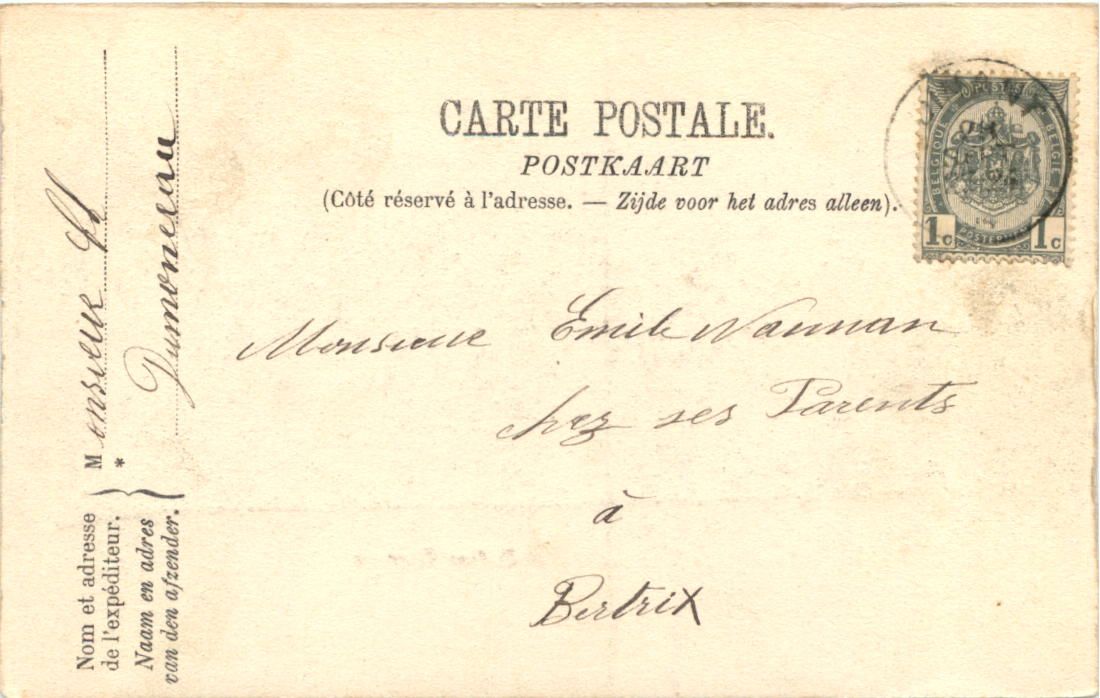 CARTE POSTALE.
POSTKAART
(Côté réservé à l'adresse. — Zijde voor het adres alleen).
BELGIQUE POSTES BELGIE
1c POSTERIJEN 1c
Monsieur Emile
chez ses Parents
à
Bertrix
Nom et adresse
de l'expéditeur.
Naam en adres
van den afzender.
Monsieur
* Dumonceau